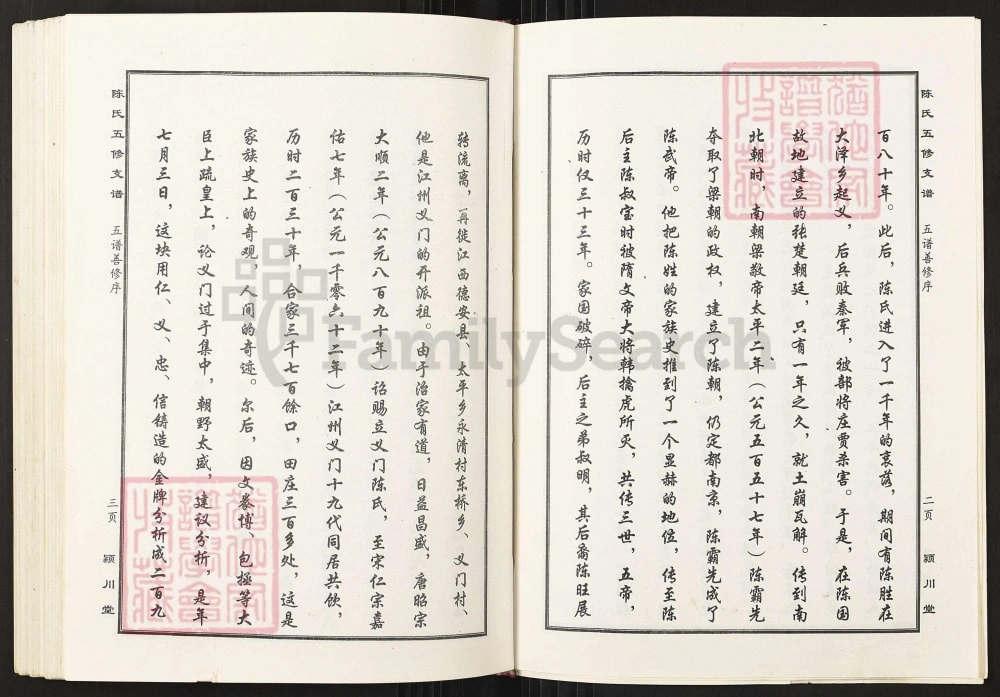 陈氏五修支谱
五谱善修序
二页
颍川堂
百八十年。此后，陈氏进入了一千年的衰落，期间有陈胜在
大泽乡起义，后兵败秦军，被部将庄贾杀害。于是，在陈国
故地建立的张楚朝廷，只有一年之久，就土崩瓦解。传到南
北朝时，南朝梁敬帝太平二年（公元五百五十七年）陈霸先
夺取了梁朝的政权，建立了陈朝，仍定都南京，陈霸先成了
陈武帝。他把陈姓的家族史推到了一个显赫的地位，传至陈
后主陈叔宝时被隋文帝大将韩擒虎所灭，共传三世，五帝，
历时仅三十三年。家国破碎，后主之弟叔明，其后裔陈旺展
转流离，再徙江西德安县、太平乡永清村东桥乡、义门村、
他是江州义门的开派祖。由于治家有道，日益昌盛，唐昭宗
大顺二年（公元八百九十年）诏赐立义门陈氏，至宋仁宗嘉
佑七年（公元一千零六十二年）江州义门十九代同居共饮，
历时二百三十年，合家三千七百馀口，田庄三百多处，这是
家族史上的奇观，人间的奇迹。尔后，因文彖博、包极等大
臣上疏皇上，论义门过于集中，朝野太盛，建议分析，是年
七月三日，这块用仁、义、忠、信铸造的金牌分析成二百九
陈氏五修支谱
五谱善修序
三页
颍川堂
FamilySearch